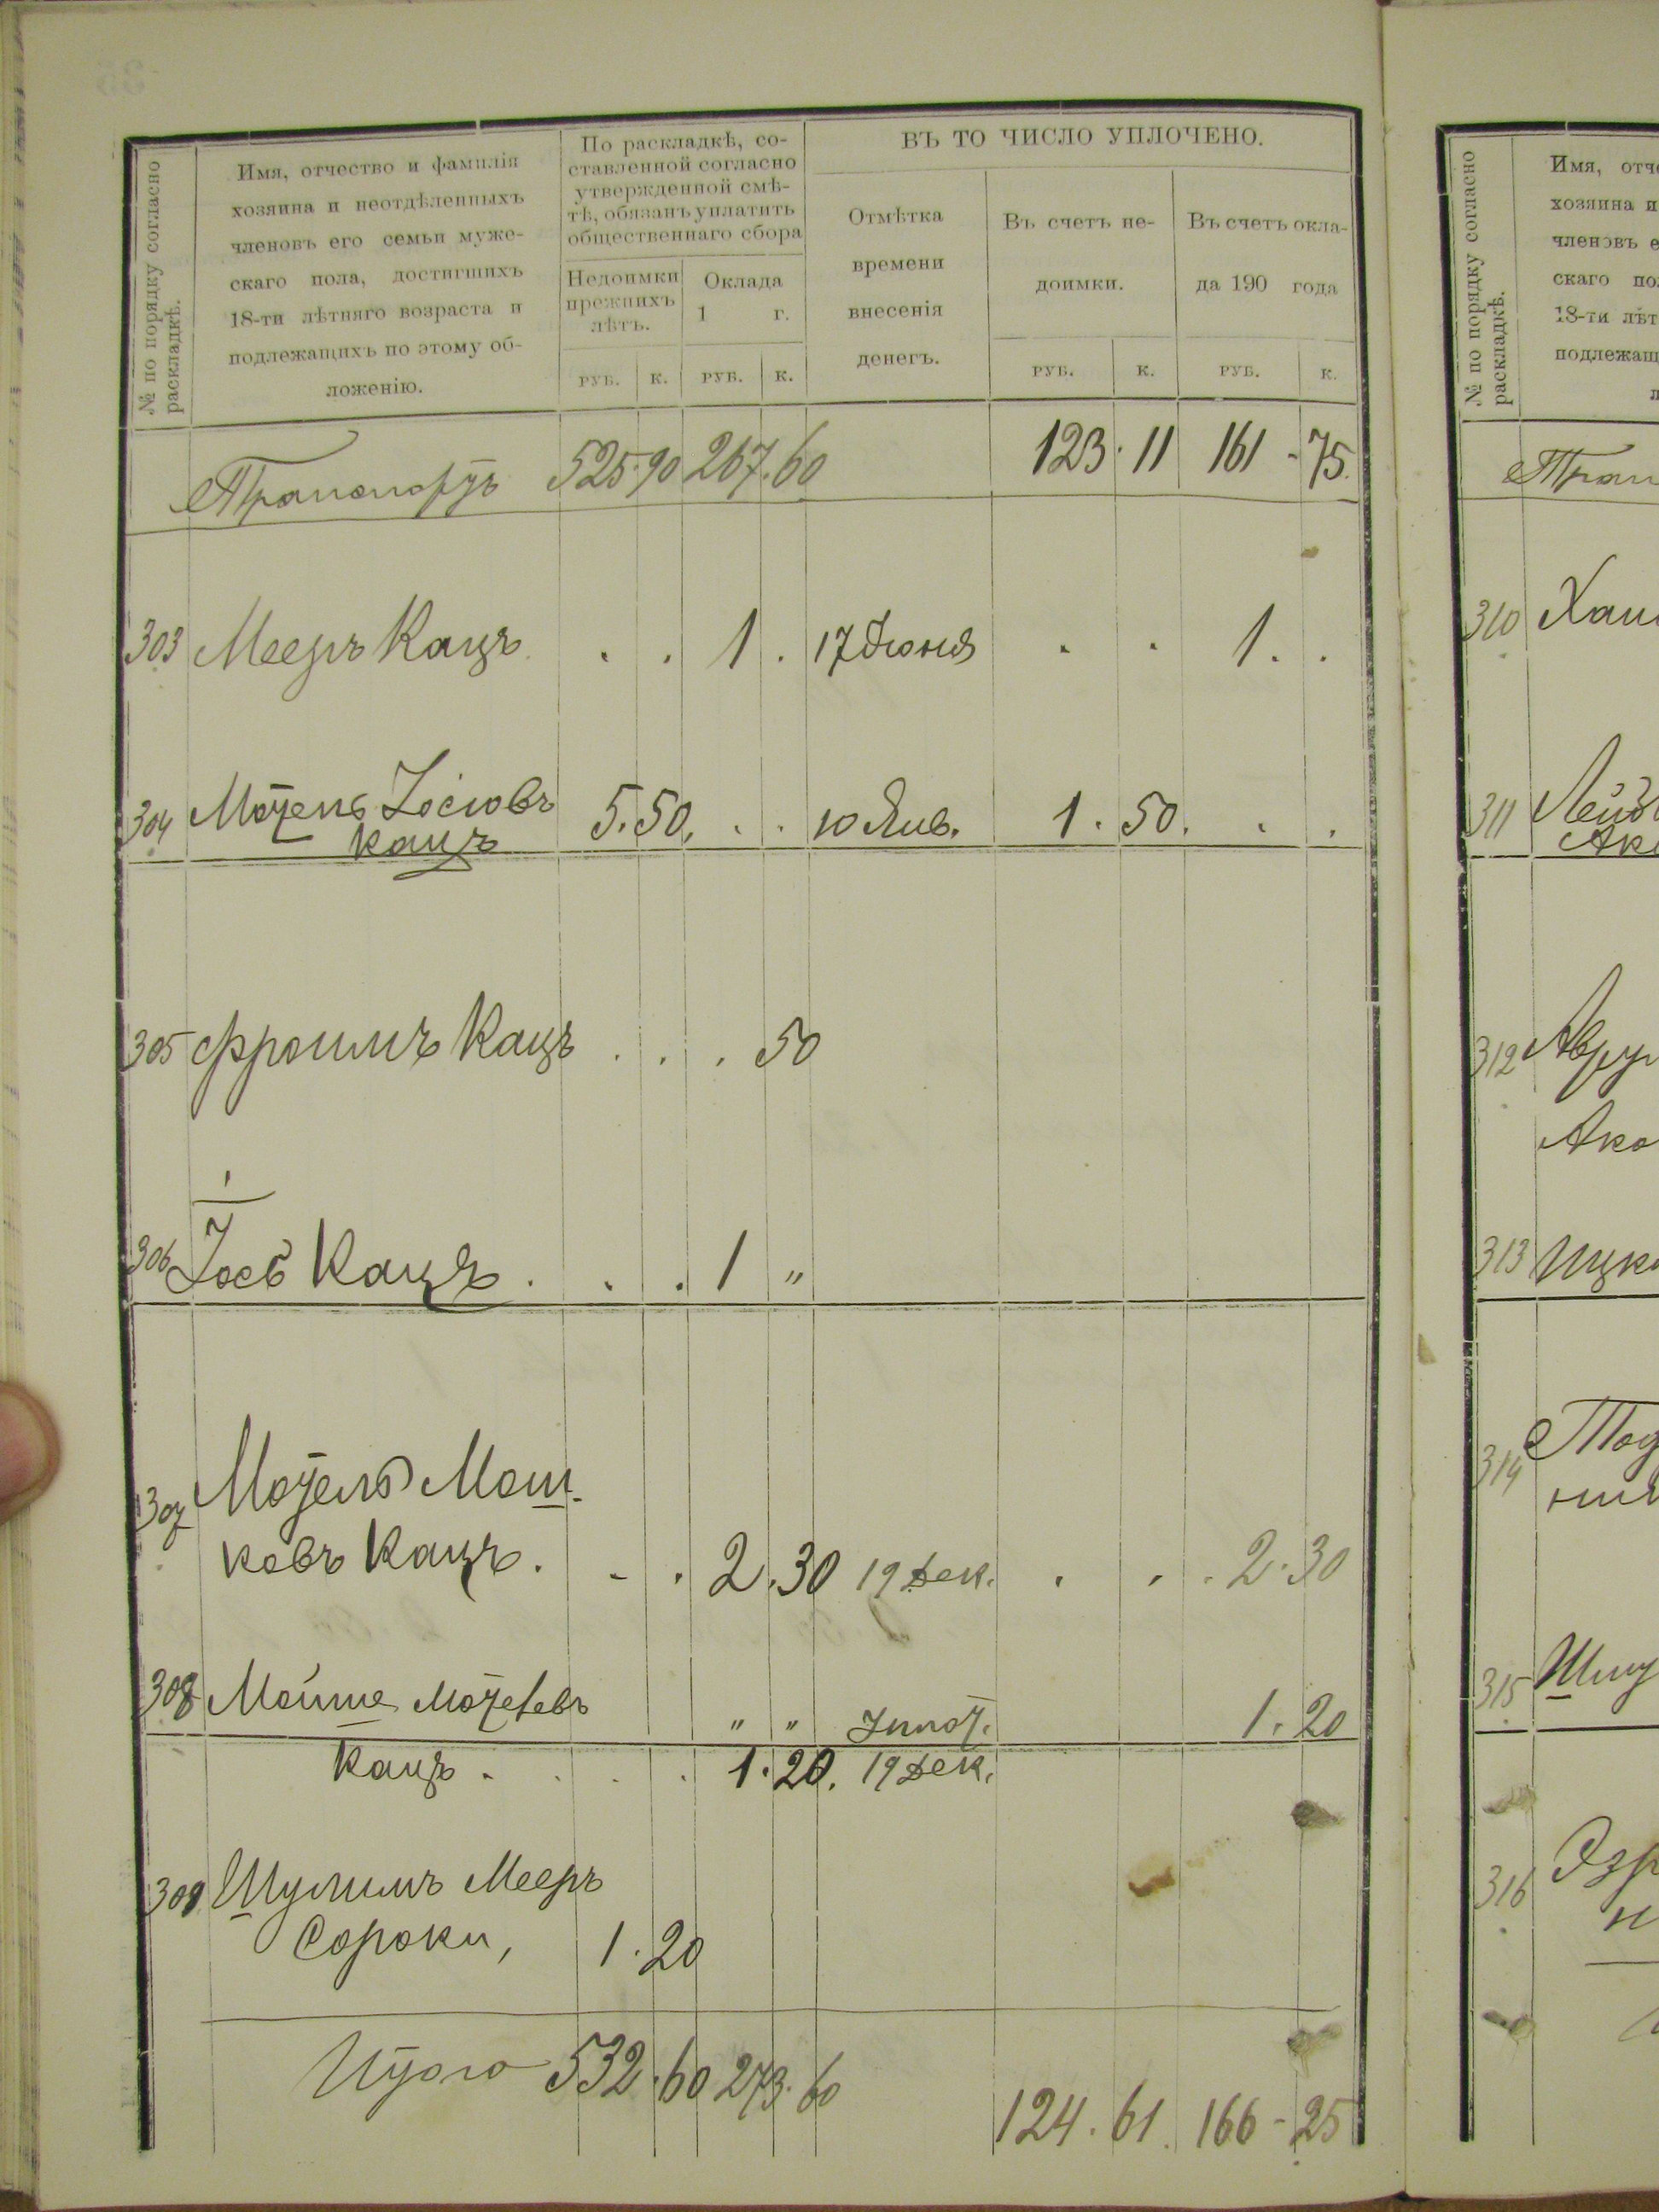 № по порядку согласно раскладкѣ.
Имя, отчество и фамилія
хозяина и неотдѣленныхъ
членовъ его семьи муже-
скаго пола, достигшихъ
18-ти лѣтняго возраста и
подлежащихъ по этому об-
ложенію.
По раскладкѣ, со-
ставленной согласно
утвержденной смѣ-
тѣ, обязанъ уплатить
общественнаго сбора
Недоимки
прежнихъ
лѣтъ.
Оклада
1 г.
ВЪ ТО ЧИСЛО УПЛОЧЕНО.
Отмѣтка
времени
внесенія
денегъ.
Въ счетъ не-
доимки.
Въ счетъ окла-
да 190 года
РУБ. К. РУБ. К. РУБ. К. РУБ. К.
Транспортъ 525.90 267.60 123.11 161-75.
303 Мееръ Кацъ . . 1 . 17 Іюня . . 1 . .
304 Мотель Іосіовъ
Кацъ 5.50. . . 10 Янв. 1.50. . .
305 Фроимъ Кацъ . . . 50
306 Іось Кацъ . . . 1 "
307 Мотель Мош-
ковъ Кацъ. . . 2.30 19 Дек. . . . 2.30
308 Мойше Мотелевъ " " Уплот. 1.20
Кацъ . . . . 1.20. 19 Дек.
309 Шулимъ Мееръ
Сороки, 1.20
Итого 532.60 273.60 124.61. 166-25
№ по порядку согласно раскладкѣ.
Имя, отч
хозяина и
членовъ е
скаго по
18-ти лѣт
подлежащ
Тран
310 Хаи
311 Лейб
Ак
312 Авру
Ако
313 Ицк
314 Тод
315 Шму
316 Эзр